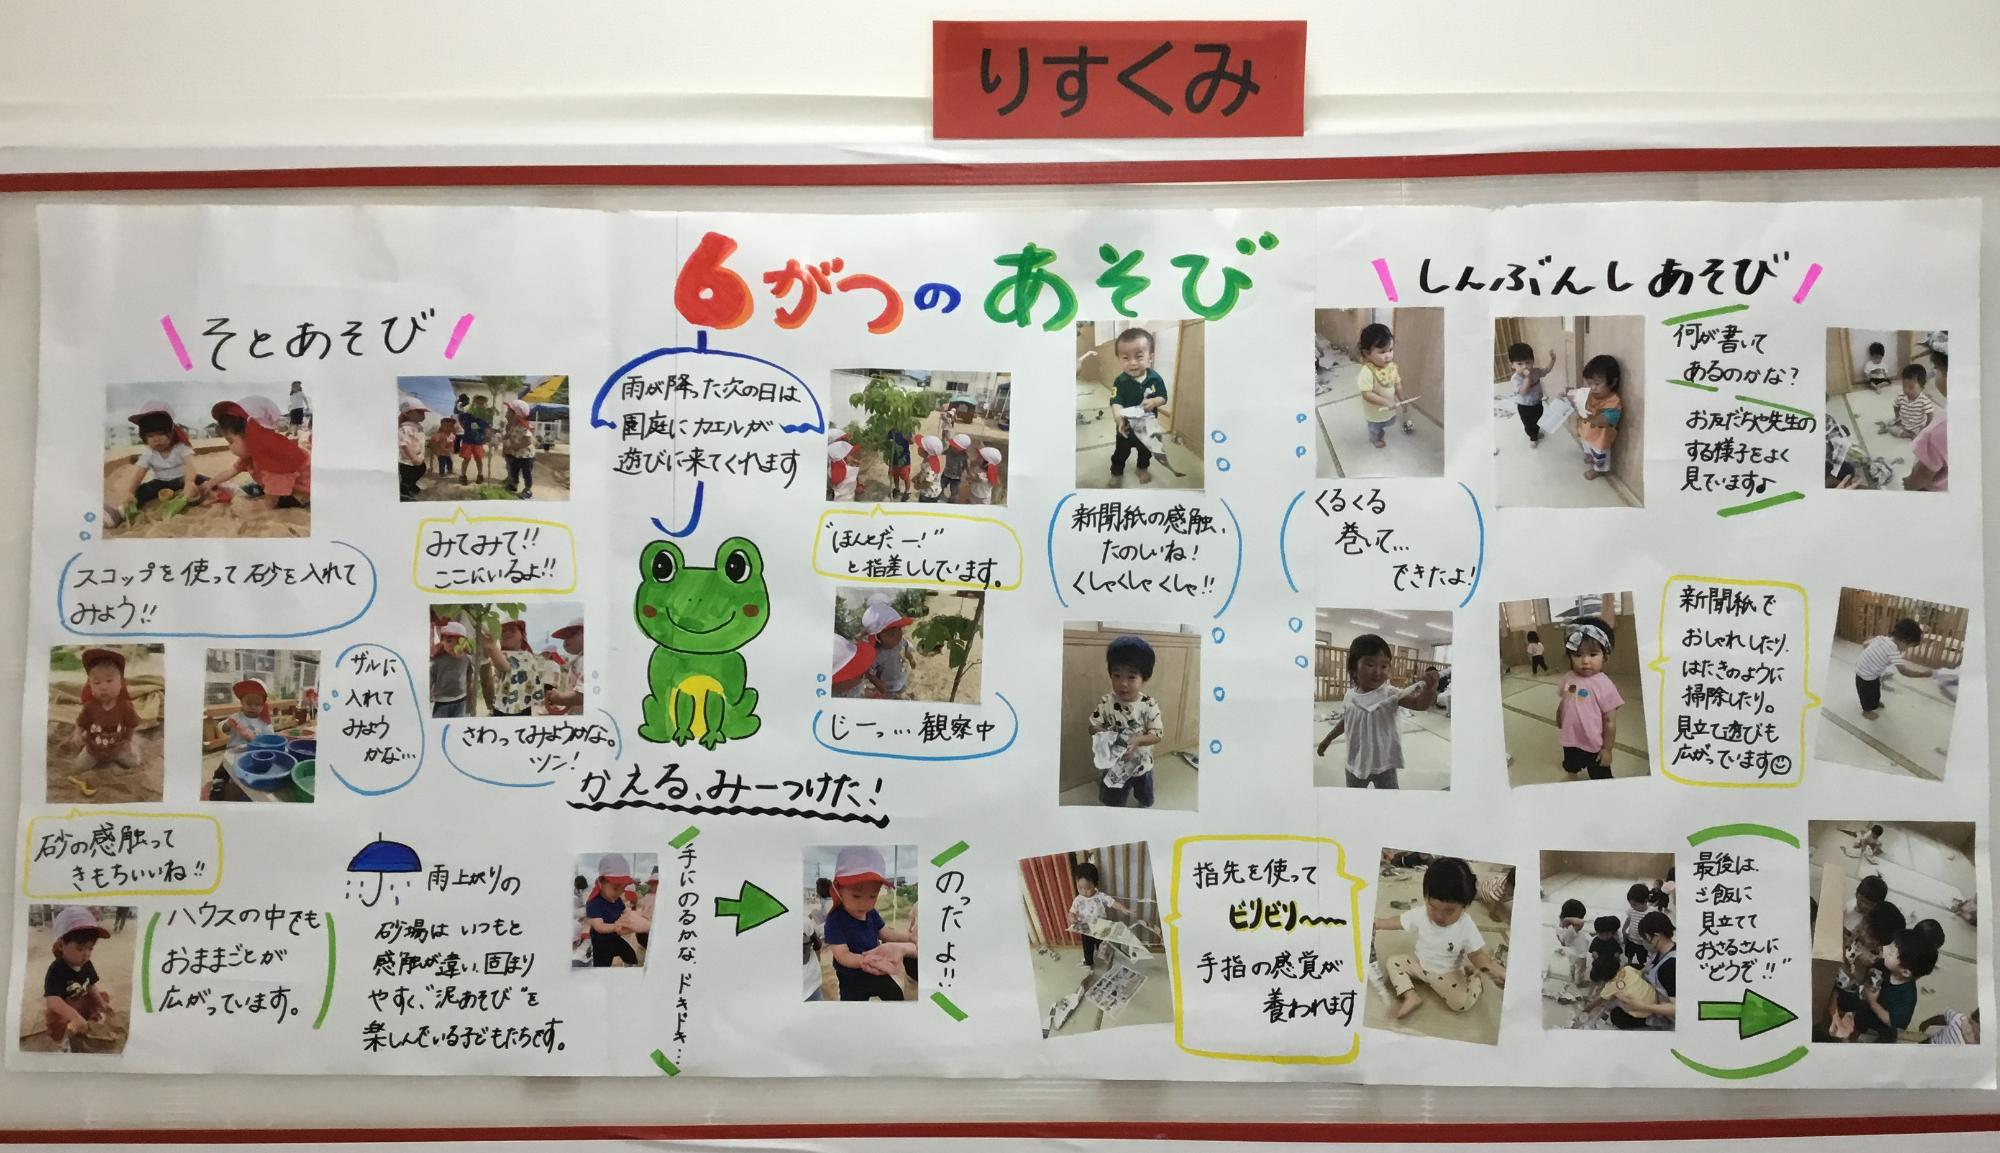 りすくみ
6がつのあそび
そとあそび
スコップを使って砂を入れて
みよう!!
みてみて!!
ここにいるよ!!
ザルに
入れて
みよう
かな…
さわってみようかな。
ツン!
砂の感触って
きもちいいね!!
ハウスの中でも
おままごとが
広がっています。
雨上がりの
砂場はいつもと
感触が違い、固まり
やすく、"泥あそび"を
楽しんでいる子どもたちです。
雨が降った次の日は
園庭にカエルが
遊びに来てくれます
"ほんとだー!"
と指差ししています。
じーっ…観察中
かえる、みーつけた!
手にのるかな、ドキドキ…
のったよ!!
しんぶんしあそび
新聞紙の感触、
たのしいね!
くしゃくしゃくしゃ!!
くるくる
巻いて…
できたよ!
何が書いて
あるのかな?
お友だちや先生の
する様子をよく
見ています♪
新聞紙で
おしゃれしたり、
はたきのように
掃除したり。
見立て遊びも
広がっています☺
指先を使って
ビリビリ〜〜
手指の感覚が
養われます
最後は、
ご飯に
見立てて
おさるさんに
"どうぞ!!"